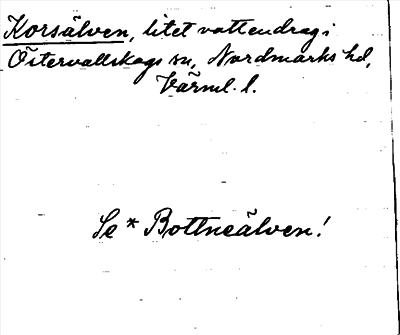 Korsälven, litet vattendrag i
Östervallskogs sn, Nordmarks hd,
Värml. l.
Se * Bottneälven!